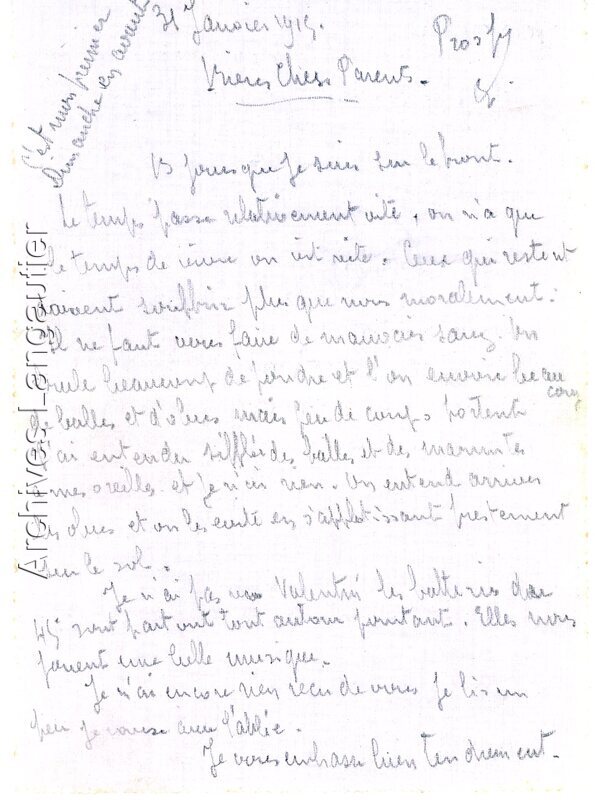 C'est mon premier
dimanche en avant
31 Janvier 1915.
Prosper
Chers Parents.
15 jours que je suis sur le front.
Le temps passe relativement vite, on n'a que
le temps de vivre on est vite. Ceux qui restent
doivent souffrir plus que nous moralement.
Il ne faut vous faire de mauvais sang. On
brule beaucoup de poudre et l'on envoie beaucoup
de balles et d'obus mais peu de coups portent
J'ai entendu siffler des balles et des marmites
à mes oreilles et je n'ai rien. On entend arriver
les obus et on les évite en s'applatissant prestement
sur le sol.
Je n'ai pas vu Valentin les batteries de
75 sont partout tout autour pourtant. Elles nous
jouent une belle musique.
Je n'ai encore rien reçu de vous Je lis un
peu je cause avec l'abbé.
Je vous embrasse bien tendrement.
Archives Langautier